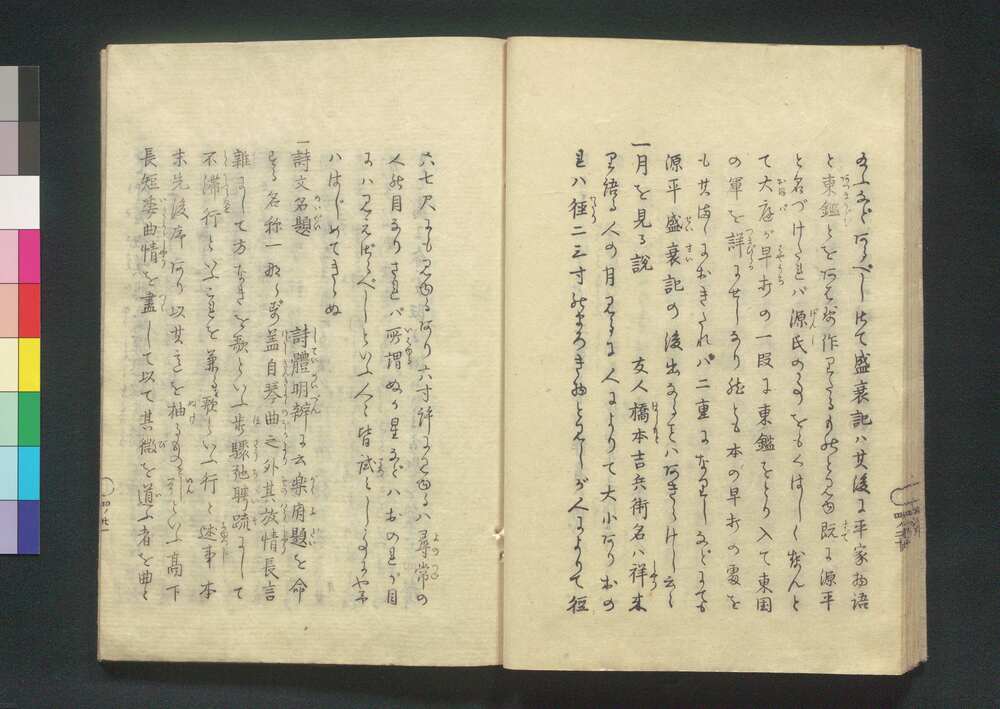 ふるなどあるべしさて盛衰記ハ其後に平家物語
と東鑑とをあはせ作りたるものと見ゆ既に源平
と名づけたれバ源氏の事をもくはしく載んと
て大庭が早打の一段に東鑑をとり入て東国
の軍を詳にせしなり然ども本の早打の処を
も其侭におきたれバ二重になりしなどにても
源平盛衰記の後出なることハあきらけし云々
一月を見る説 友人橋本吉兵衛名ハ祥来
り語る人の月見るに人によりて大小あり おの
れハ径二三寸のまろき物と見しが人によりて径
六七尺にも見ゆるあり六寸許に見ゆるハ尋常の
人の目なりされバ所謂ぬか星などハおのれが目
にハ見えざるべしといふ人々皆試としよるやみ
ハはじめてきゝぬ
一詩文名題 詩體明辨に云樂府題を命
ずる名称一ならず蓋自琴曲之外其放情長言
雜にして方なきを歌といふ歩驟馳騁疏にして
不滞行といふこれを兼を歌行といふ行と述事本
末先後序あり以其意を抽るものを引といふ高下
長短委曲情を盡して以て其微を道ふ者を曲と